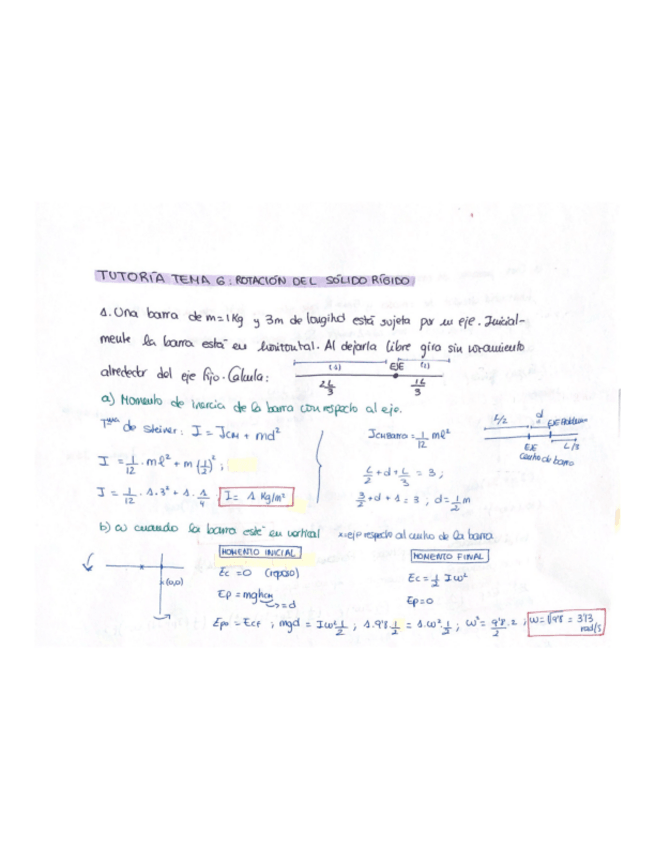 TUTORÍA TEMA 6: ROTACIÓN DEL SÓLIDO RÍGIDO
1. Una barra de m=1Kg y 3m de longitud está sujeta por un eje. Inicial-
mente la barra está en horizontal. Al dejarla libre gira sin rozamiento
alrededor del eje fijo. Calcula:
EJE
2L/3
1L/3
a) Momento de inercia de la barra con respecto al eje.
Tma de Steiner: I = ICM + md²
I = 1/12 · ml² + m(1/2)² ;
I = 1/12 · 1·3² + 1 · 1/4 I = 1 Kg/m²
ICM BARRA = 1/12 ml²
L/2 + d + L/3 = 3 ;
3/2 + d + 1 = 3 ; d = 1/2 m
L/2
d
EJE
L/3
centro de barra
b) ω cuando la barra esté en vertical
respecto al centro de la barra
(0,0)
MOMENTO INICIAL
Ec = 0 (reposo)
Ep = mghcm
=d
MOMENTO FINAL
Ec = 1/2 Iω²
Ep = 0
Epo = Ecf ; mgd = Iω² 1/2 ; 1·9'8·1/2 = 1·ω²·1/2 ; ω² = 9'8/2 · 2 ; ω = √9'8 = 3'13 rad/s